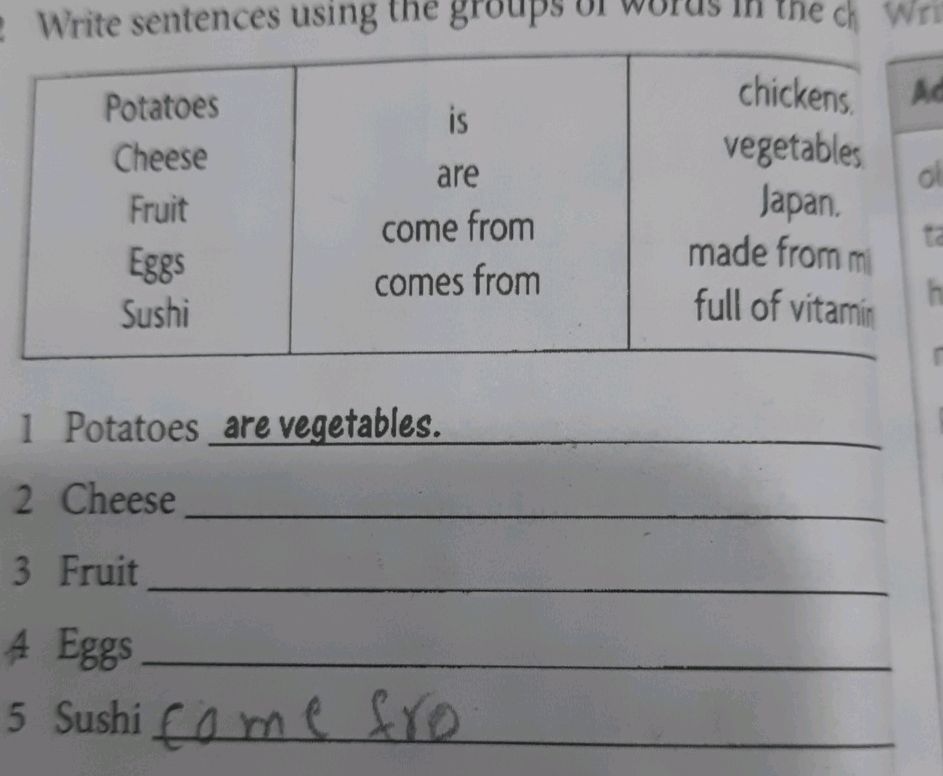 Write sentences using the groups of words in the
Potatoes
Cheese
Fruit
Eggs
Sushi
is
are
come from
comes from
chickens.
vegetables
Japan.
made from
full of
1 Potatoes are vegetables.
2 Cheese
3 Fruit
4 Eggs
5 Sushi come fro